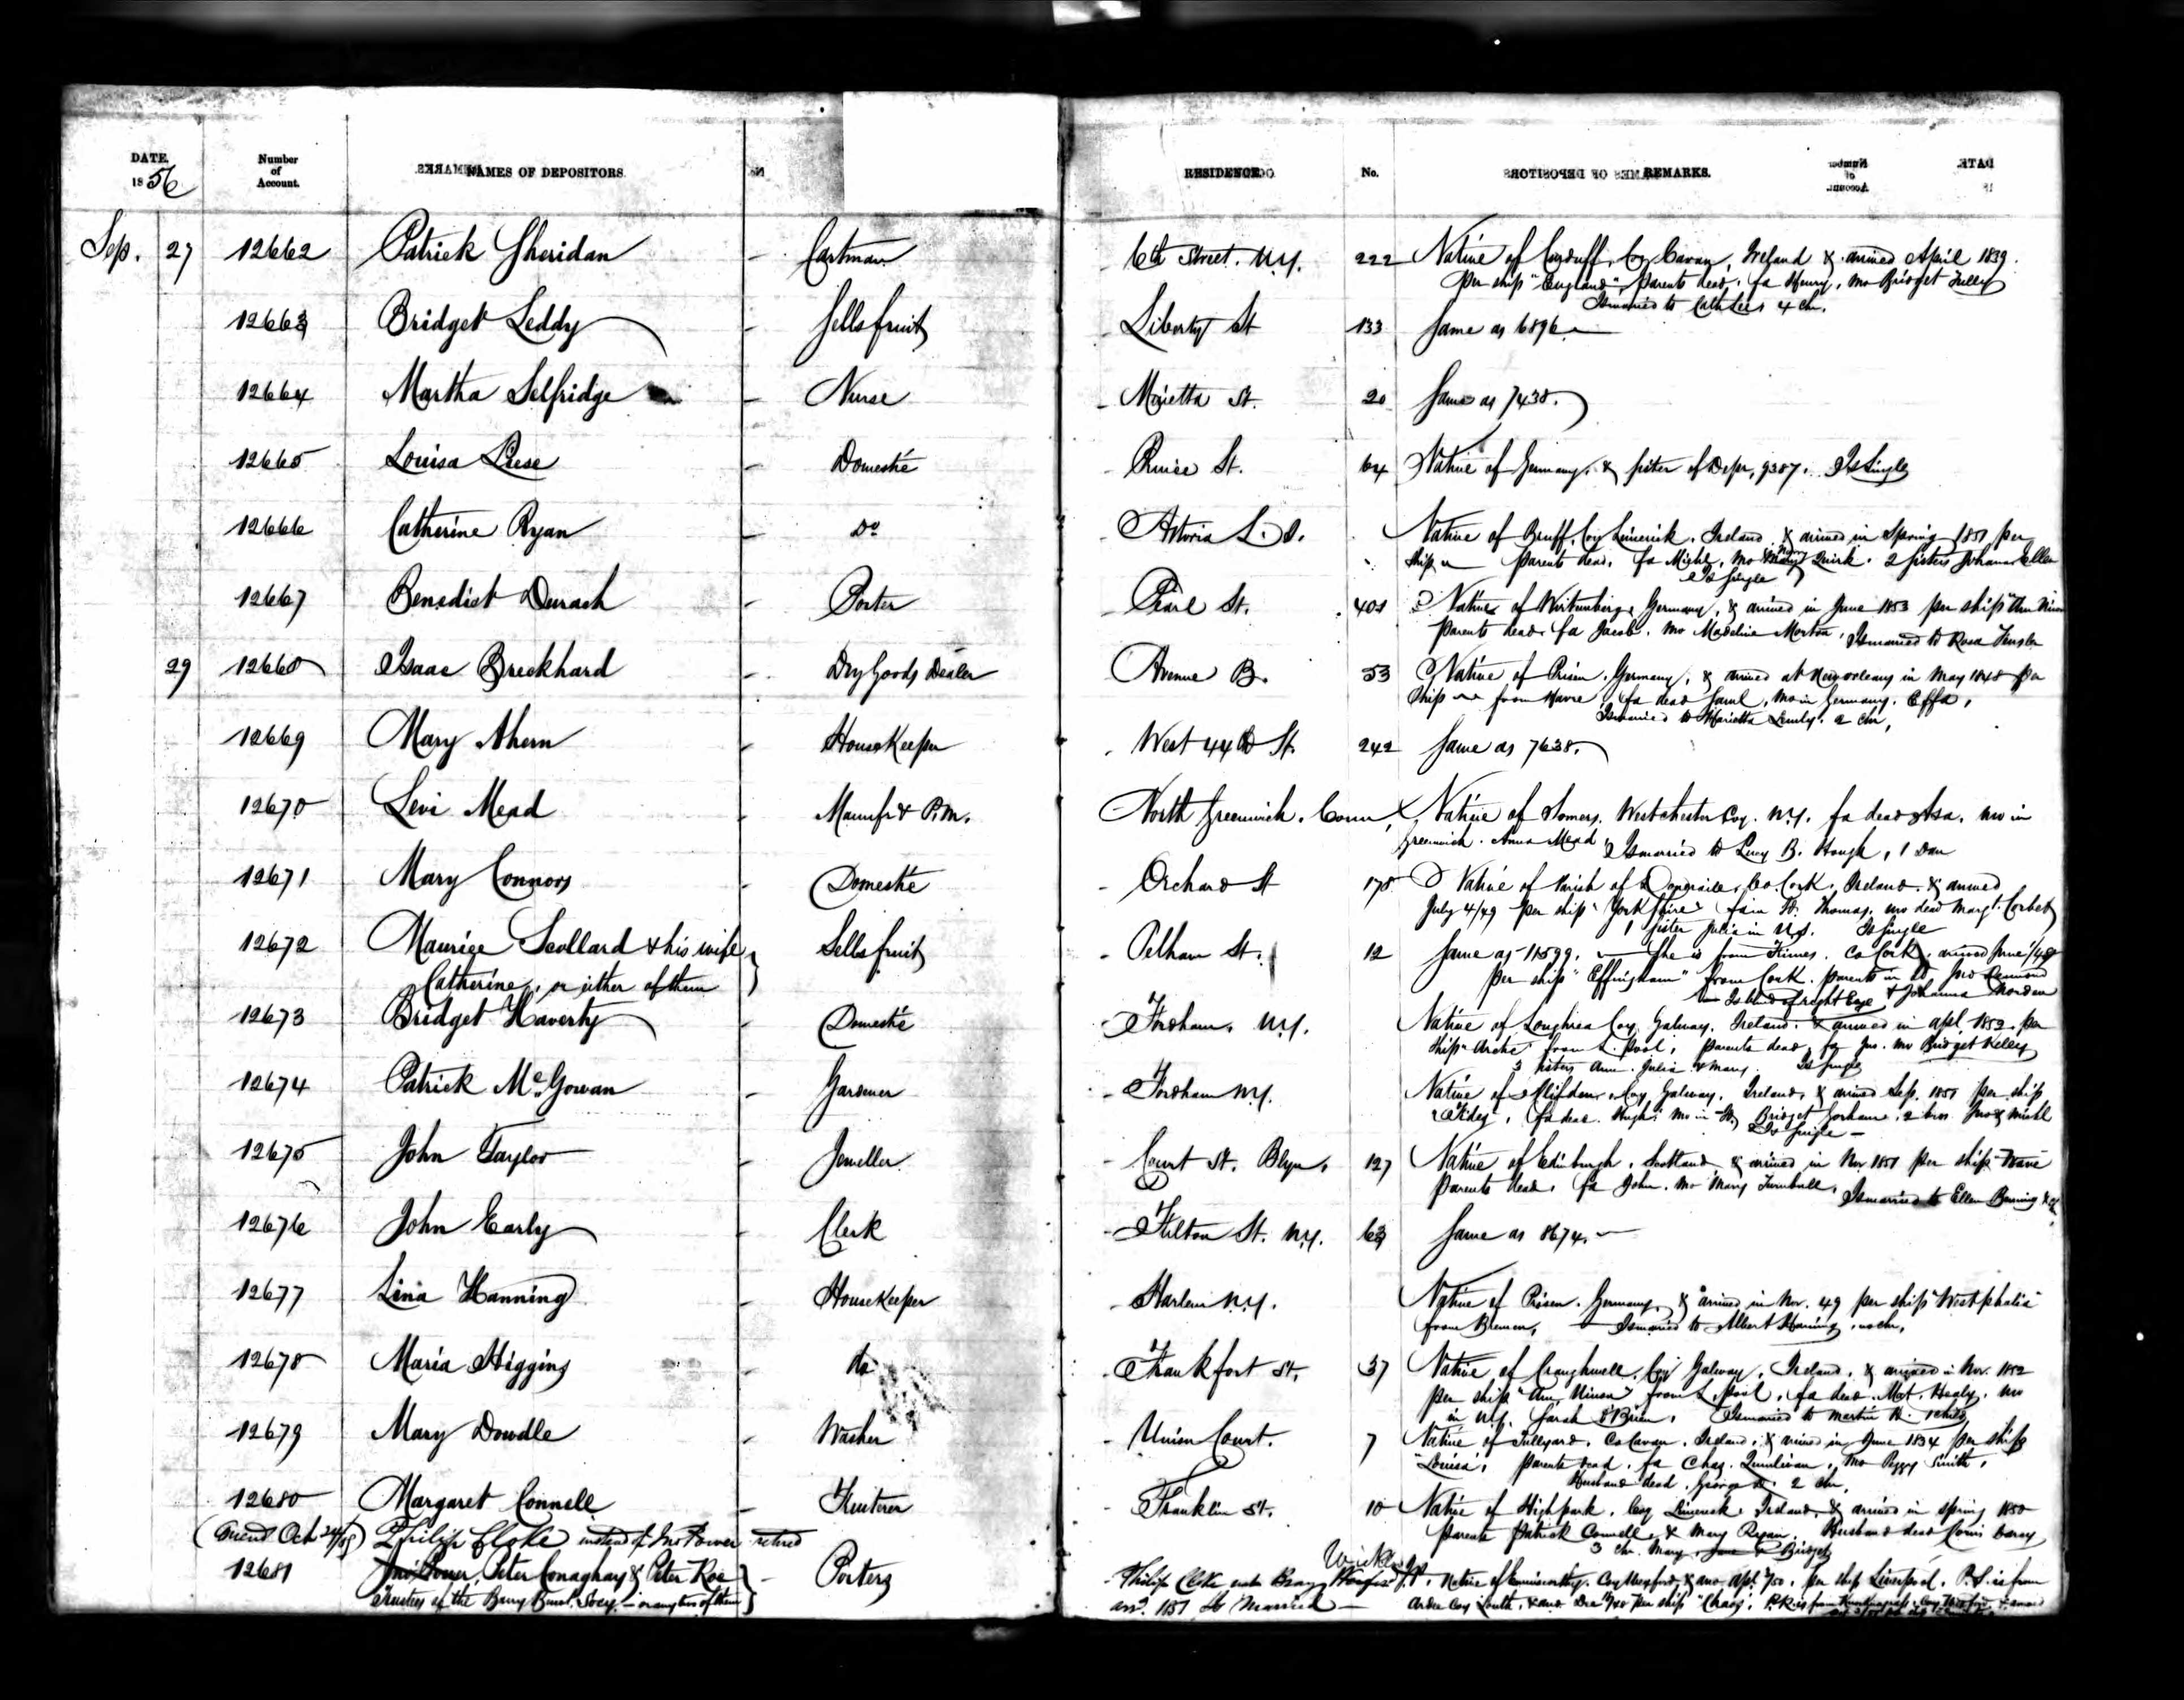 DATE. Number of Account. NAMES OF DEPOSITORS. RESIDENCE. No. REMARKS.
1856
Sep. 27 12662 Patrick Sheridan - Cartman - 6th Street. N.Y. 222 Native of Coy Cavan, Ireland & arrived April 1839.
Per ship "England" parents dead. fa Henry, mo Bridget Tully
Is married to Cath Lees 4 chn.
12663 Bridget Leddy - Sells fruit - Liberty St 133 Same as 6896.
12664 Martha Selfridge - Nurse - Marietta St. 20 Same as 7438.
12665 Louisa Liese - Domestic - Prince St. 64 Native of Germany. & sister of Depr, 9387. Is Single
12666 Catherine Ryan - Do - Astoria L.I. Native of Bruff, Coy Limerick. Ireland & arrived in Spring 1851 per
ship parents dead. fa Michl, mo Quirk. 2 sisters Johanna Ellen
Is single
12667 Benedict Durach - Porter - Pearl St. 401 Native of Wirtemberg, Germany, & arrived in June 1853 per ship
parents dead, fa Jacob. mo Madeline Morton, Is married to Rosa Tensler
29 12668 Isaac Breckhard - Dry Goods Dealer - Avenue B. 53 Native of Germany, & arrived at New orleans in May 1848 per
Ship from Havre, fa dead Saml, mo in Germany. Effa,
Is married to Marietta 2 chn,
12669 Mary Ahern - House Keeper - West 44th St. 242 Same as 7638.
12670 Levi Mead - Manufr & P.M. North Greenwich. Conn, Native of Somers, Westchester Coy. N.Y. fa dead Asa. mo in
Greenwich. Anna Mead Is married to Lucy B. Hough, 1 Dau
12671 Mary Connors - Domestic - Orchard St 178 Native of Parish of Doneraile, Co. Cork, Ireland. & arrived
July 4/49 per ship "Yorkshire" fa in Id. Thomas, mo dead Margt. Corbet
1 sister Julia in U.S. Is single
12672 Maurice Scollard & his wife - Sells fruit - Pelham St. 12 Same as 11599. She is from Co Cork, arrived June /48
Catherine, or either of them
per ship "Effingham" from Cork. parents in Id, Jno &
Is blind of right Eye & Johanna
12673 Bridget Haverty - Domestic - Fordham, N.Y. Native of Loughrea Coy. Galway. Ireland. & arrived in apl. 1852. per
ship from L. pool, parents dead, fa Jno. mo Bridget Kelly
3 sisters Ann. Julia & Mary. Is single
12674 Patrick McGowan - Gardener - Fordham N.Y. Native of Clifden, Coy Galway. Ireland, & arrived Sep. 1851 per ship
fa dead. Hugh. mo in Id, Bridget Gorham. 2 bros Jno & Michl
Is Single -
12675 John Taylor - Jeweller - Court St. Blyn. 127 Native of Edinburgh, Scotland & arrived in Nov 1851 per ship
parents dead. fa John. mo Mary Turnbull. Is married to Ellen
12676 John Early - Clerk - Fulton St. N.Y. 63 Same as 8674.
12677 Lina Hanning - House Keeper - Harlem N.Y. Native of Germany. & arrived in Nov. 49 per ship "Westphalia"
from Bremen, Is married to Albert Hanning, no chn,
12678 Maria Higgins - do - Frankfort St. 37 Native of Craughwell, Coy Galway, Ireland. & arrived in Nov. 1852
per ship from L. pool, fa dead. Mat. Healy. mo
in N.Y. Sarah O'Brien. Is married to Martin H. 1 child
12679 Mary Dowdle - Washer - Union Court. 7 Native of Co Cavan. Ireland. & arrived in June 1834 per ship
"Louisa", parents dead. fa Chas. Quinlivan, mo Peggy Smith,
Husband dead, George D. 2 chn,
12680 Margaret Connell - Fruiterer - Franklin St. 10 Native of Highpark. Coy Limerick. Ireland. & arrived in spring 1850
parents Patrick Connell, & Mary Ryan. Husband dead
3 chn. Mary, Jane & Bridget
Oct Philip Cloke instead of Jno Power retired
12681 Jno Power, Peter Conaghay & Peter Roe - Porters
Trustees of the Socy. - or any two of them
Philip Cloke Bray Wicklow Native of Enniscorthy. Coy Wexford, & arrd apl. /50, per ship Liverpool. P. is from
arrd. 1851 Is Married
Ardee Coy Louth, & arrd Dec per ship "Chaos", P.R. is from